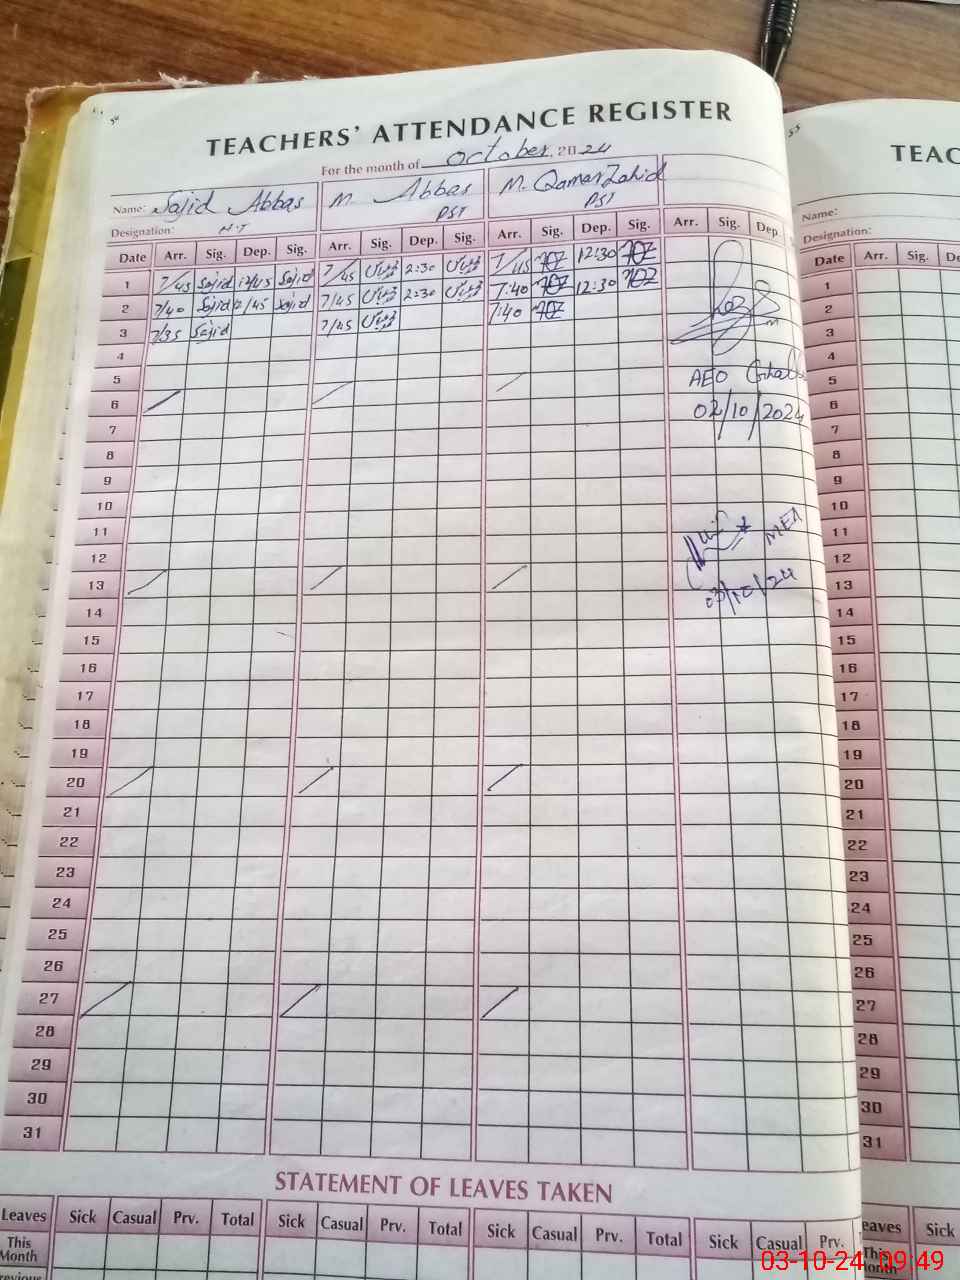 54
TEACHERS' ATTENDANCE REGISTER
For the month of October, 2024
Name: Sajid Abbas M. Abbas M. Qamar Zahid
Designation: H.T PST PST
Date Arr. Sig. Dep. Sig. Arr. Sig. Dep. Sig. Arr. Sig. Dep. Sig. Arr. Sig. Dep.
1 7/45 Sajid 12/45 Sajid 7/45 2:30 7/45 QZ 12:30 QZ
2 7/40 Sajid 2/45 Sajid 7/45 2:30 7:40 QZ 12:30 QZ
3 7/35 Sajid 7/45 7:40 QZ
4
5
AEO
6
02/10/2024
7
8
9
10
11
MEA
12
13
03/10/24
14
15
16
17
18
19
20
21
22
23
24
25
26
27
28
29
30
31
STATEMENT OF LEAVES TAKEN
Leaves Sick Casual Prv. Total Sick Casual Prv. Total Sick Casual Prv. Total Sick Casual Prv.
This Month
55
TEAC
Name:
Designation:
Date Arr. Sig. De
1
2
3
4
5
6
7
8
9
10
11
12
13
14
15
16
17
18
19
20
21
22
23
24
25
26
27
28
29
30
31
eaves Sick
This
03-10-24 09:49